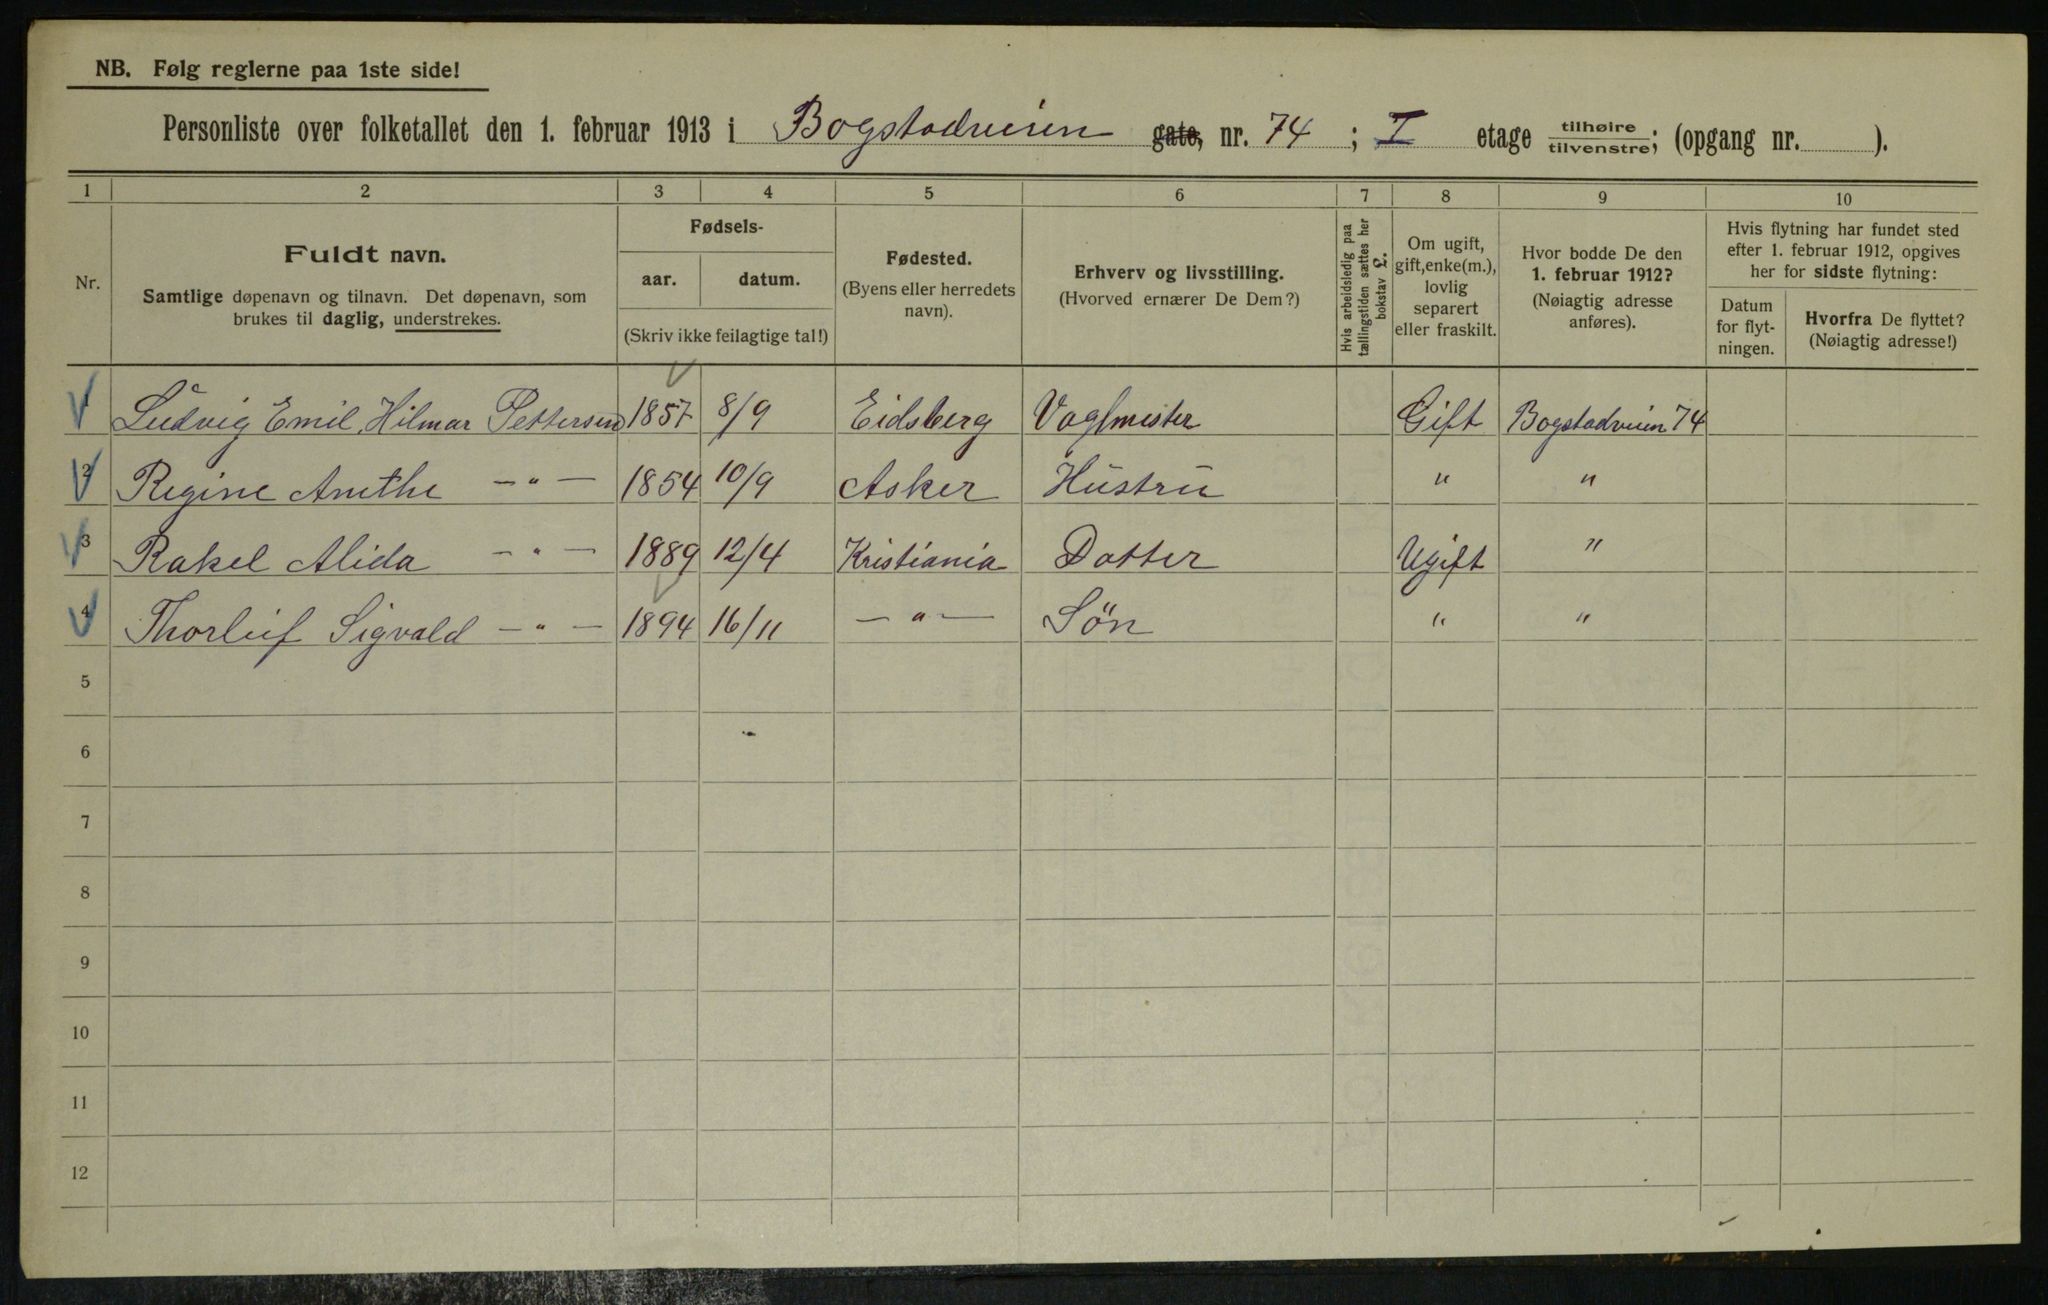 NB. Følg reglerne paa 1ste side!
Personliste over folketallet den 1. februar 1913 i Bogstadveien gate, nr. 74 ; I etage tilhøire tilvenstre; (opgang nr. ).
1 2 3 4 5 6 7 8 9 10
Nr.
Fuldt navn.
Samtlige døpenavn og tilnavn. Det døpenavn, som
brukes til daglig, understrekes.
Fødsels-
aar. datum.
(Skriv ikke feilagtige tal!)
Fødested.
(Byens eller herredets
navn).
Erhverv og livsstilling.
(Hvorved ernærer De Dem?)
Hvis arbeidsledig paa
tællingstiden sættes her
bokstav L.
Om ugift,
gift, enke(m.),
lovlig
separert
eller fraskilt.
Hvor bodde De den
1. februar 1912?
(Nøiagtig adresse
anføres).
Hvis flytning har fundet sted
efter 1. februar 1912, opgives
her for sidste flytning:
Datum
for flyt-
ningen.
Hvorfra De flyttet?
(Nøiagtig adresse!)
1 Ludvig Emil Hilmar Pettersen 1857 8/9 Eidsberg Gift Bogstadveien 74
2 Regine Anethe —"— 1854 10/9 Asker Hustru " "
3 Rakel Alida —"— 1889 12/4 Kristiania Datter Ugift "
4 Thorleif Sigvald —"— 1894 16/11 —"— Sön " "
5
6
7
8
9
10
11
12